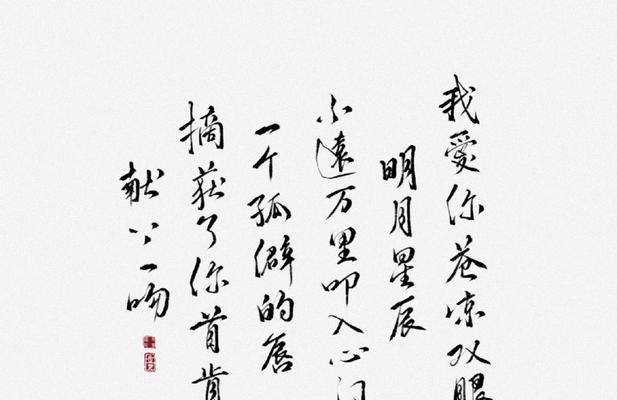 我爱你苍凉双眼
明月星辰
不遠万里叩入心门
一个孤僻的唇
摘获了你首肯
献上一吻